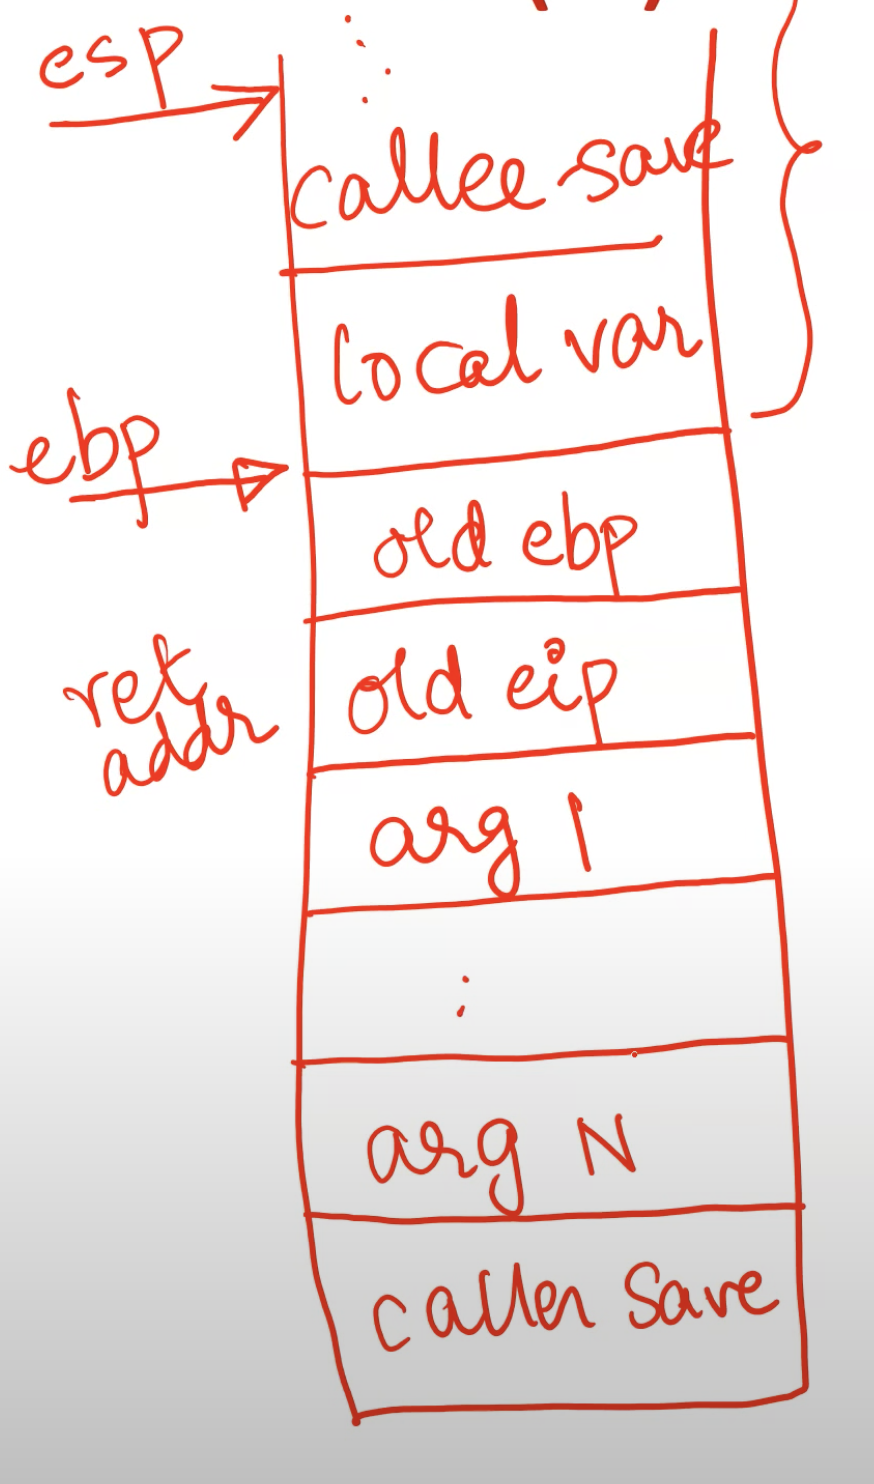 esp
callee save
local var
ebp
old ebp
ret
addr
old eip
arg 1
:
arg N
caller save